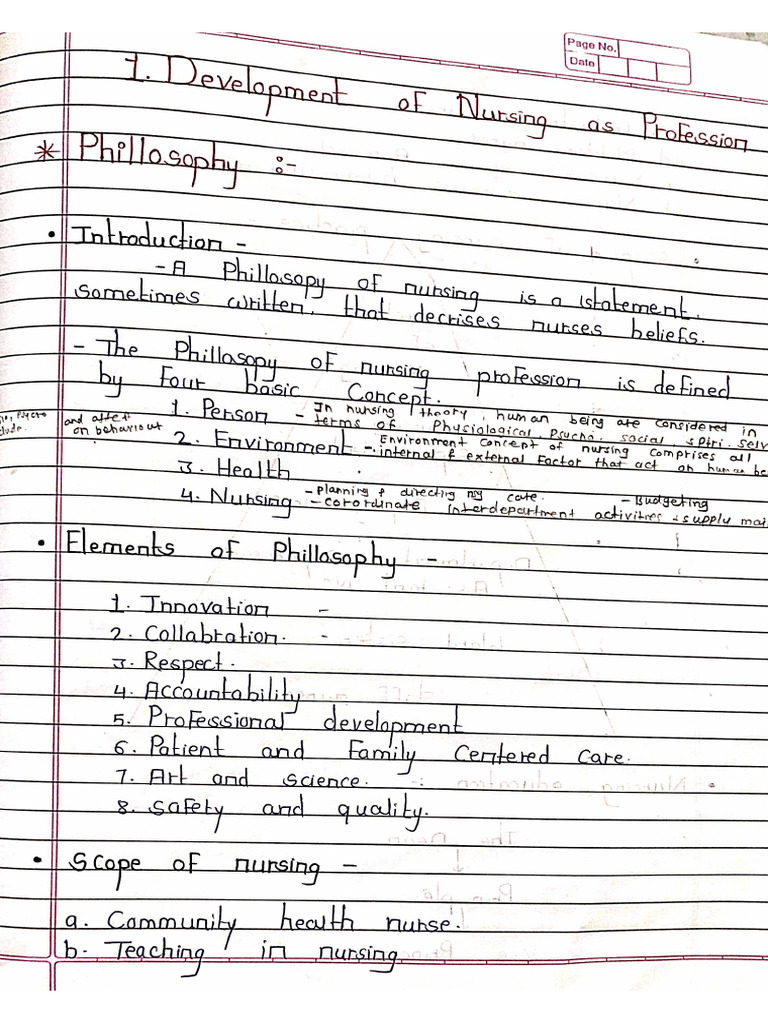 Page No.
Date
1. Development of Nursing as Profession
* Phillosophy :-
• Introduction -
- A Phillosapy of nursing is a statement.
sometimes written, that decrises nurses beliefs.
- The Phillasopy of nursing profession is defined
by Four basic Concept.
1. Person - In nursing theory, human being are considered in
terms of Physiological, Psycho. social, sptri. selv
and affet
on behaviout
2. Environment - Environment concept of nursing comprises all
internal & external Factor that act on human be
3. Health
4. Nursing - Planning & directing ng care. - Budgeting
- coroordinate interdepartment activities & supply mat
• Elements of Phillosaphy -
1. Innovation -
2. Collabration. -
3. Respect.
4. Accountability
5. Professional development
6. Patient and Family Centered care.
7. Art and science.
8. safety and quality.
• Scope of nursing -
a. Community health nurse.
b. Teaching in nursing